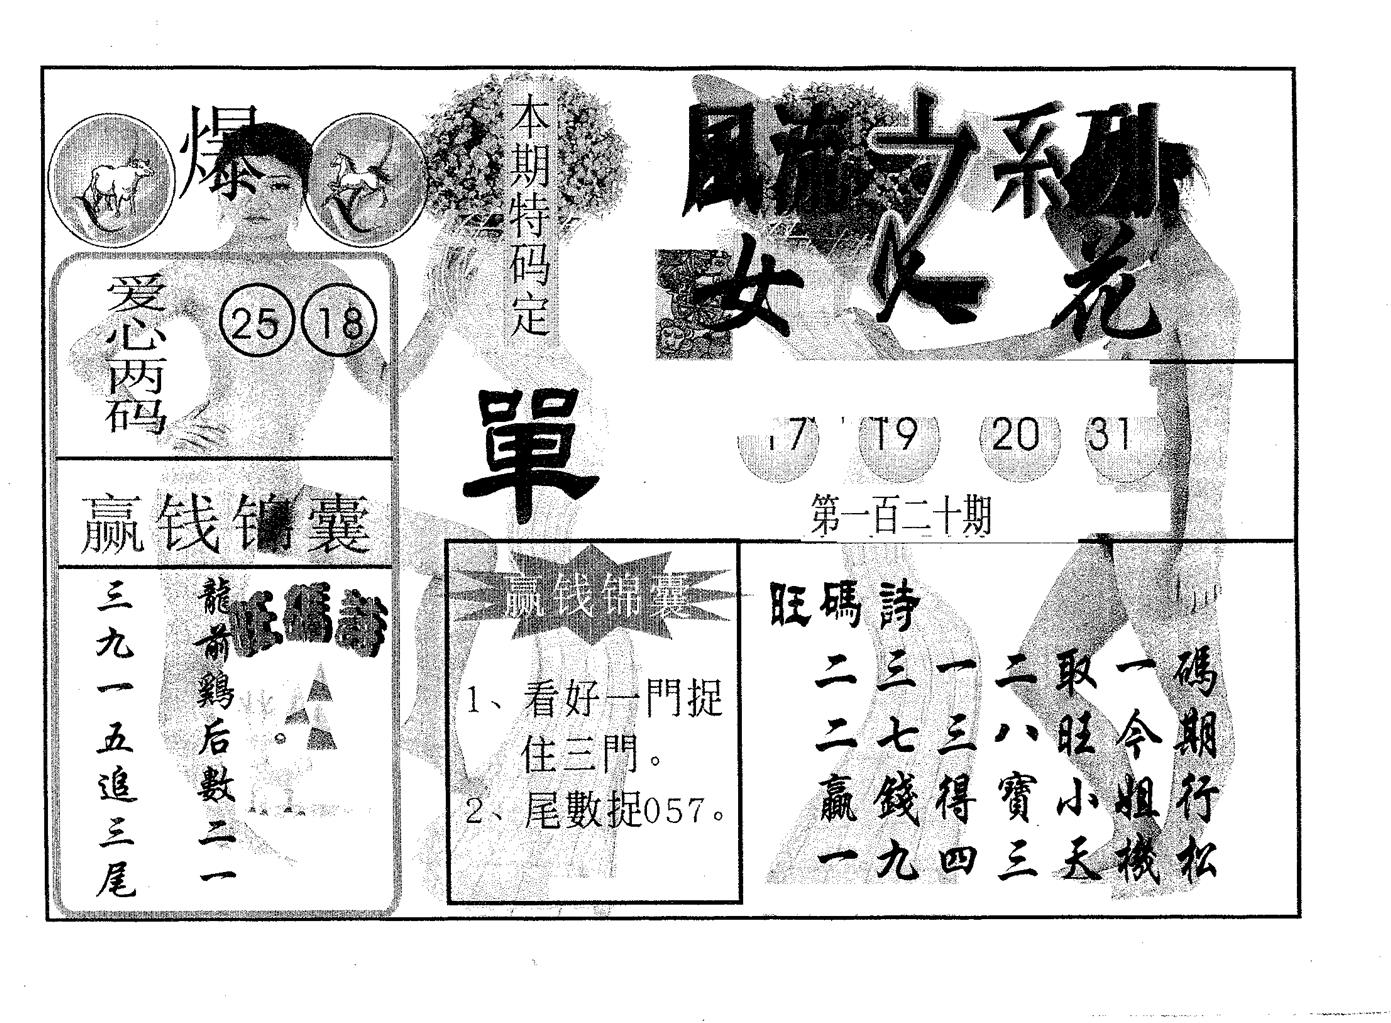 爆
本期特码定
單
爱心两码
25 18
赢钱锦囊
旺碼詩
龍前鷄后數二一
三九一五追三尾
風流之系列
女人花
17 19 20 31
第一百二十期
赢钱锦囊
1、看好一門捉
住三門。
2、尾數捉057。
旺碼詩
二三一二取一碼
二七三八旺今期
贏錢得寶小姐行
一九四三天機松